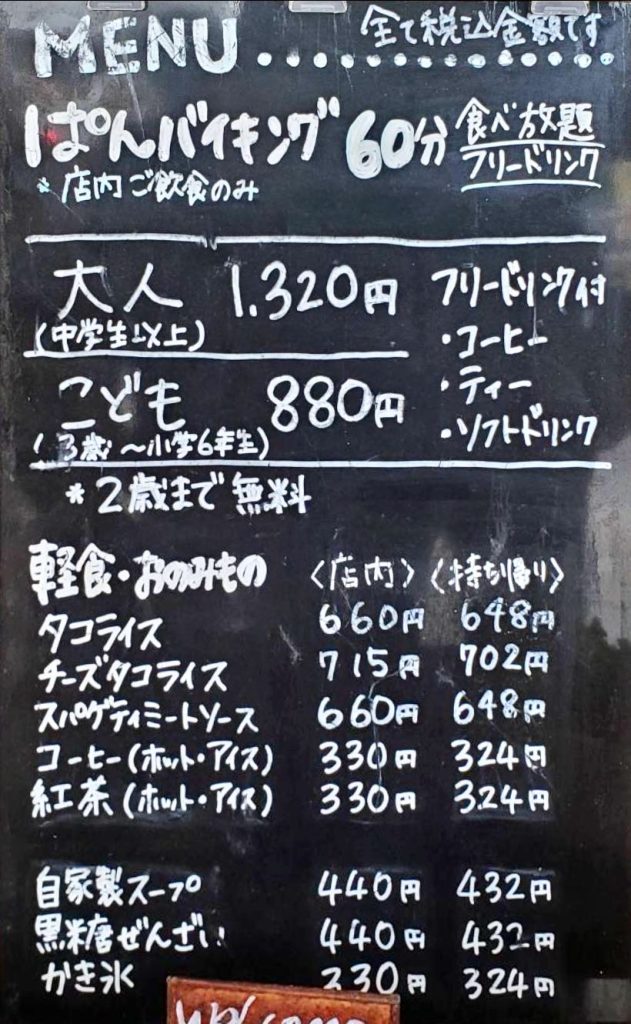 MENU 全て税込金額です
ぱんバイキング 60分 食べ放題
フリードリンク
* 店内ご飲食のみ
大人 1.320円 フリードリンク付
(中学生以上) ・コーヒー
こども 880円 ・ティー
(3歳〜小学6年生) ・ソフトドリンク
*2歳まで無料
軽食・おのみもの 〈店内〉 〈持ち帰り〉
タコライス 660円 648円
チーズタコライス 715円 702円
スパゲティミートソース 660円 648円
コーヒー(ホット・アイス) 330円 324円
紅茶(ホット・アイス) 330円 324円
自家製スープ 440円 432円
黒糖ぜんざい 440円 432円
かき氷 330円 324円